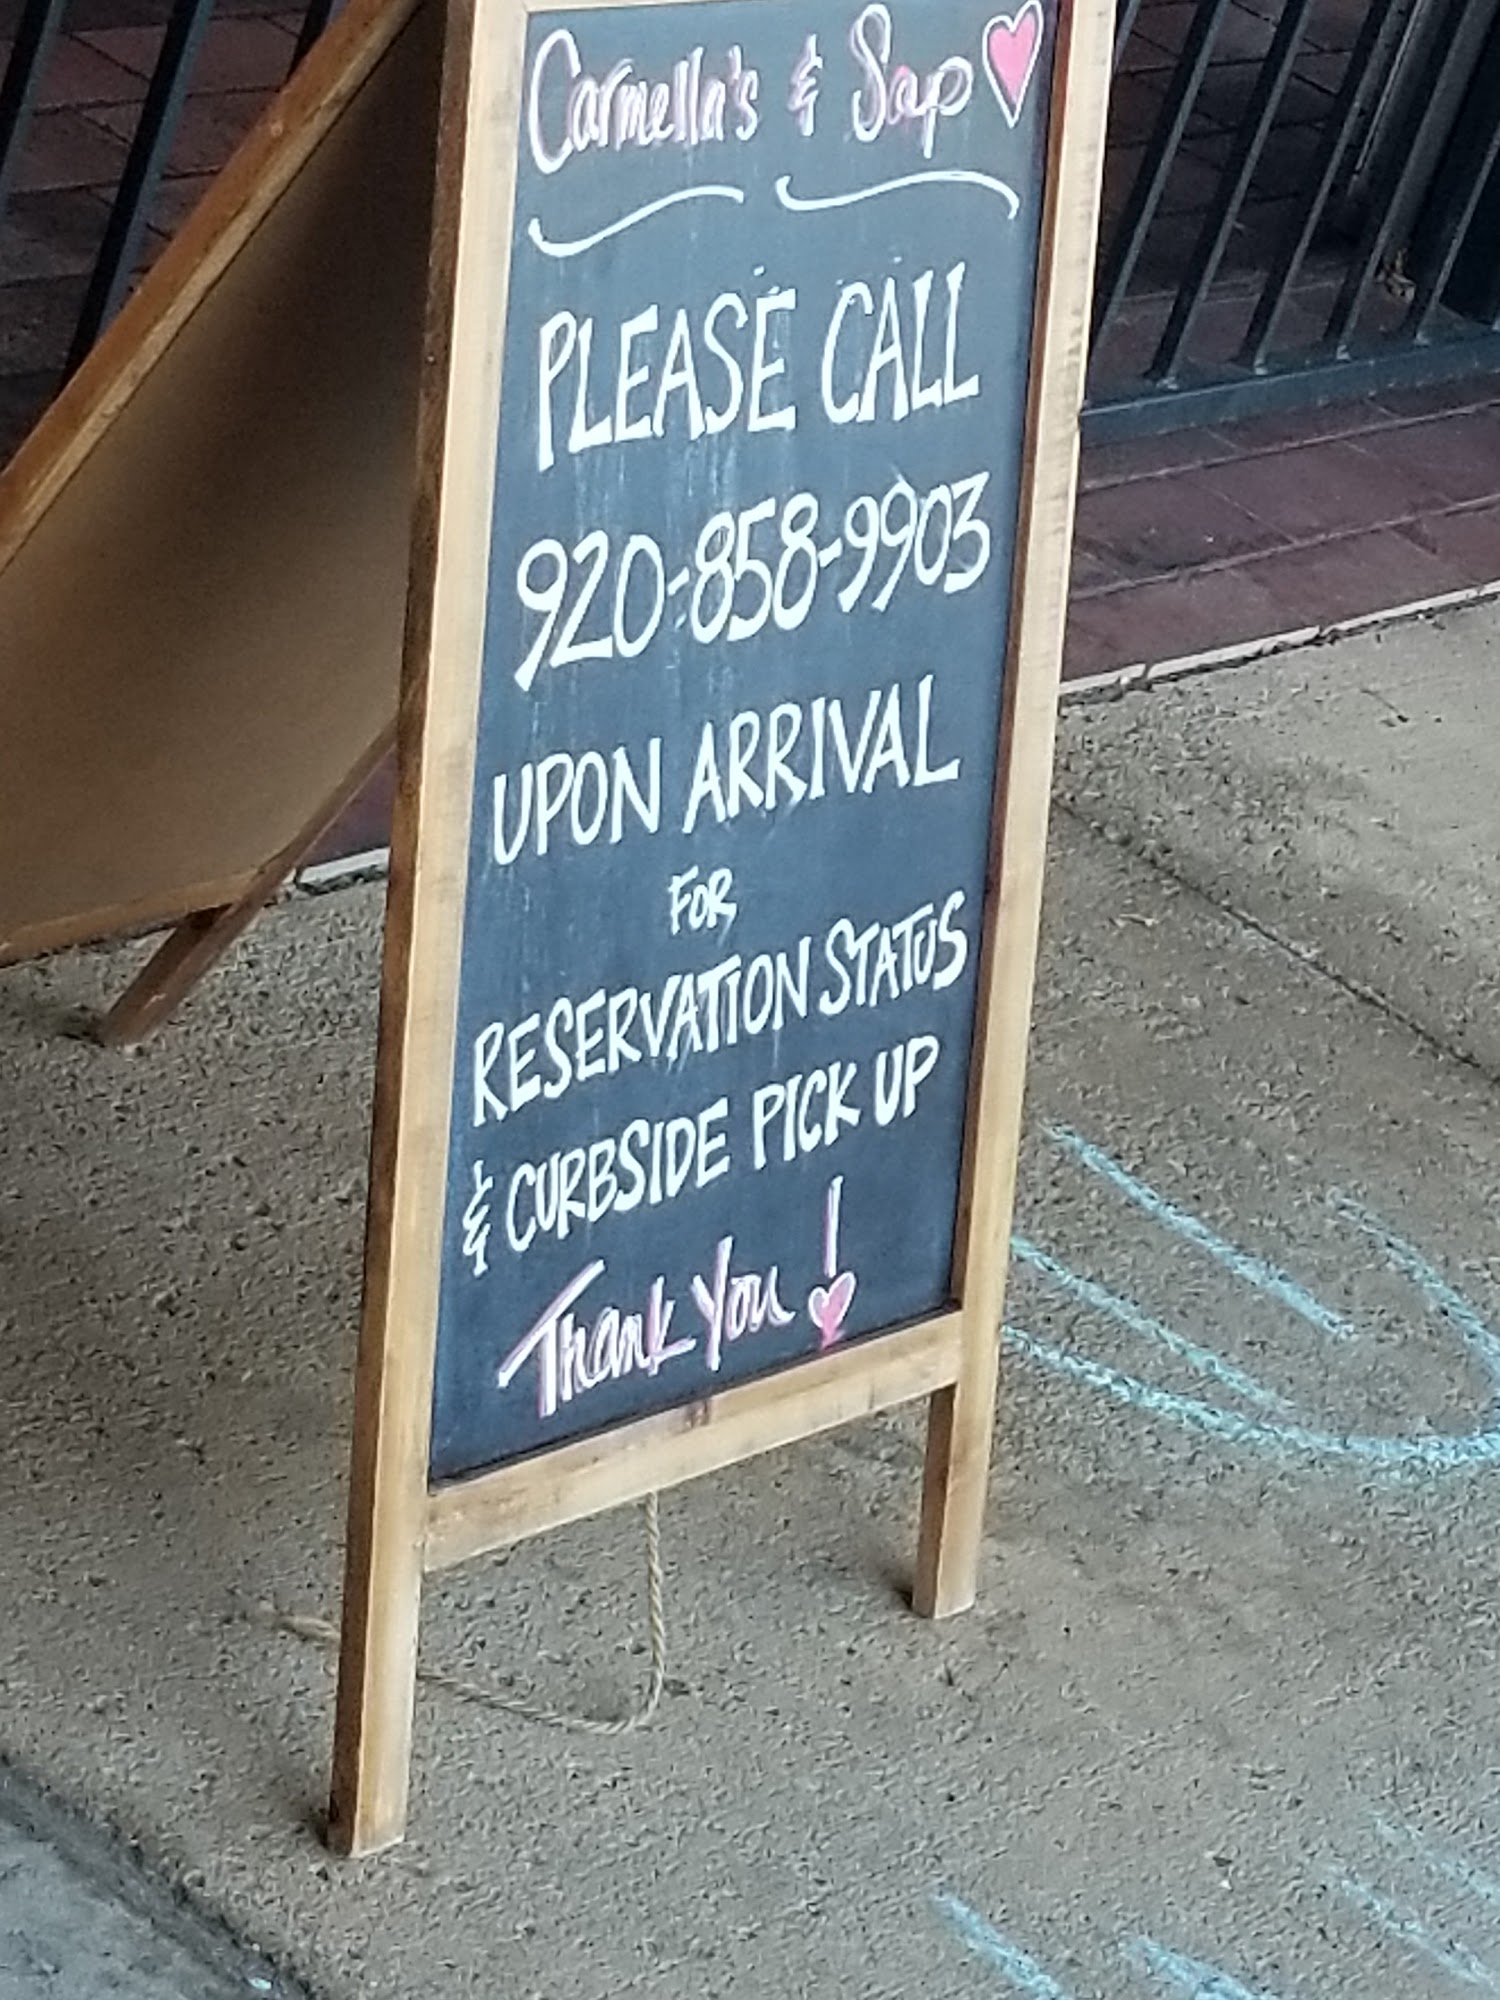 Carmella's & Sap
PLEASE CALL
920-858-9903
UPON ARRIVAL
FOR
RESERVATION STATUS
& CURBSIDE PICK UP
Thank You!